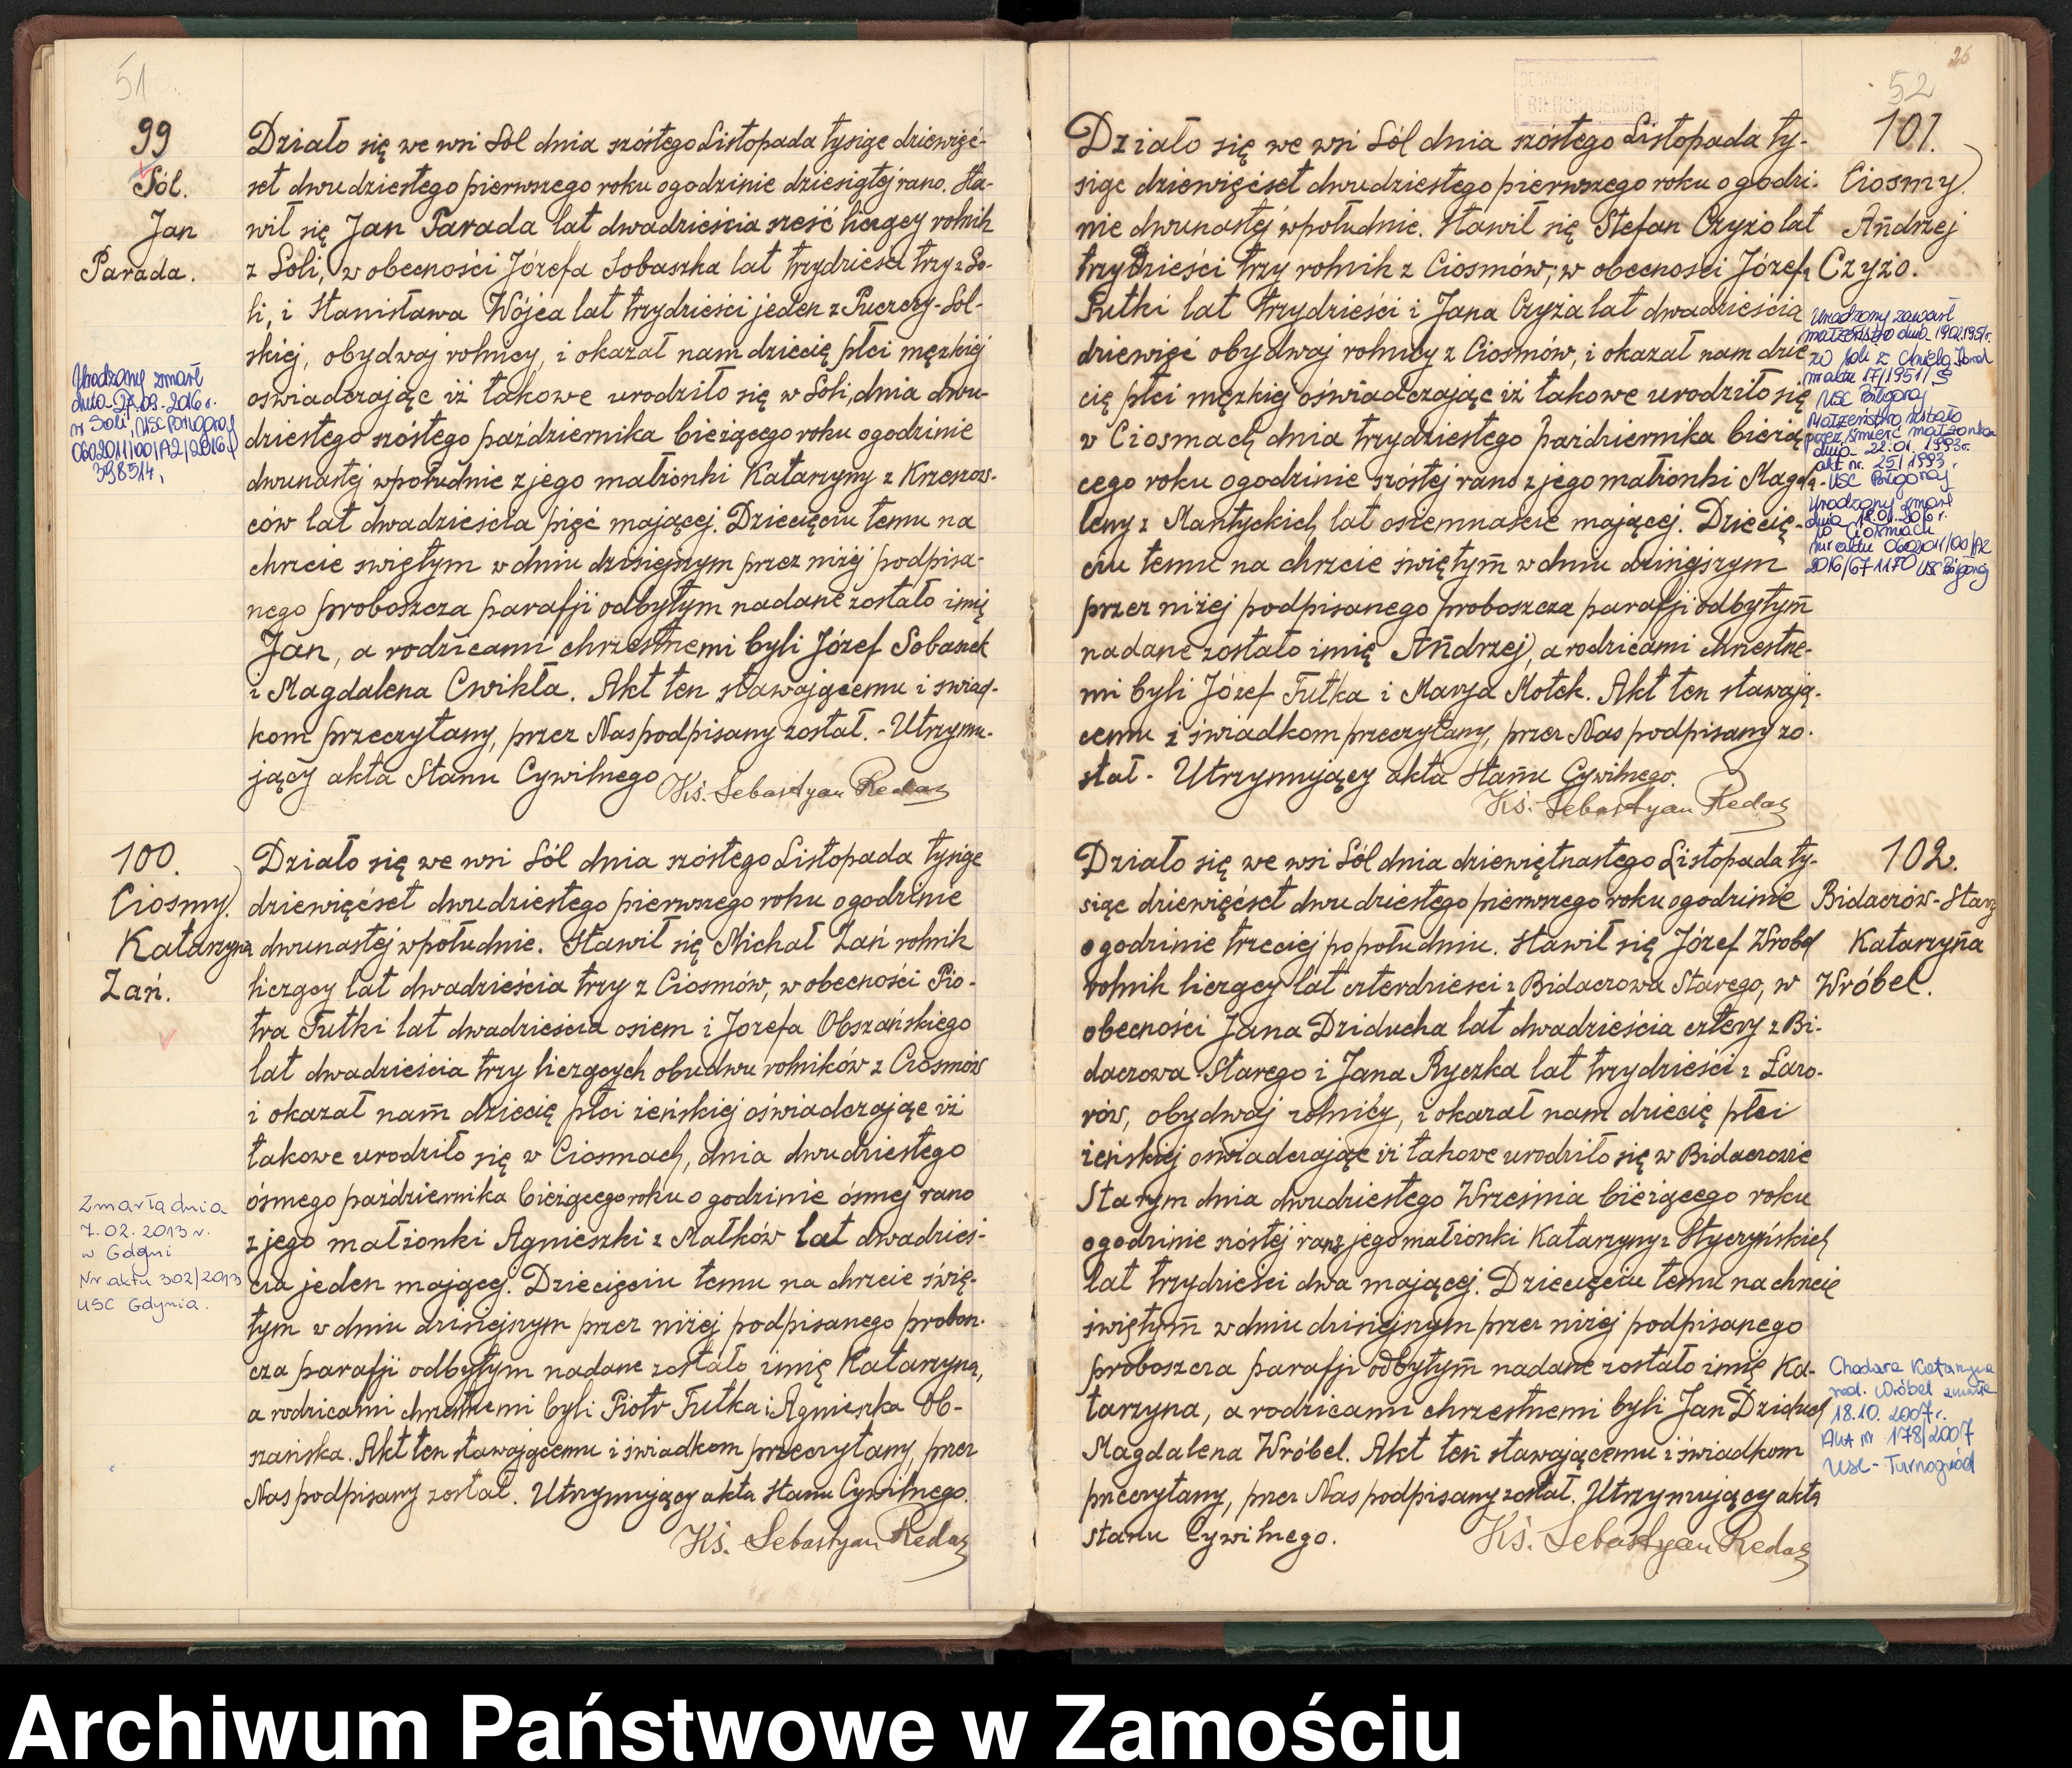 51
99
Sól.
Jan
Parada.
Działo się we wsi Sól dnia szóstego Listopada tysiąc dziewięć-
set dwudziestego pierwszego roku o godzinie dziesiątej rano. Sta-
wił się Jan Parada lat dwadzieścia sześć liczący rolnik
z Soli, w obecności Józefa Sobaszka lat trzydzieści trzy z So-
li, i Stanisława Wójca lat trzydzieści jeden z Puszczy-Sol-
skiej, obydwaj rolnicy, i okazał nam dziecię płci męzkiej
oświadczając iż takowe urodziło się w Soli, dnia dwu-
dziestego szóstego października bieżącego roku o godzinie
dwunastej w południe z jego małżonki Katarzyny z Krzeszow-
ców lat dwadzieścia pięć mającej. Dziecięciu temu na
chrzcie świętym w dniu dzisiejszym przez niżej podpisa-
nego proboszcza parafji odbytym nadane zostało imię
Jan, a rodzicami chrzestnemi byli Józef Sobaszek
i Magdalena Cwikła. Akt ten stawającemu i świad-
kom przeczytany, przez Nas podpisany został. - Utrzymu-
jący akta Stanu Cywilnego Ks. Sebastyan Redas
Urodzony zmarł
dnia 27.09.2016 r.
w Soli, USC Biłgoraj
0602011/00/A2/2016/
398514,
100.
Ciosmy.
Katarzyna
Zań.
Działo się we wsi Sól dnia szóstego Listopada tysiąc
dziewięćset dwudziestego pierwszego roku o godzinie
dwunastej w południe. Stawił się Michał Zań rolnik
liczący lat dwadzieścia trzy z Ciosmów, w obecności Pio-
tra Futki lat dwadzieścia osiem i Jozefa Obszańskiego
lat dwadzieścia trzy liczących obudwu rolników z Ciosmów
i okazał nam dziecię płci żeńskiej oświadczając iż
takowe urodziło się w Ciosmach, dnia dwudziestego
ósmego października bieżącego roku o godzinie ósmej rano
z jego małżonki Agnieszki z Małków lat dwadzieś-
cia jeden mającej. Dziecięciu temu na chrzcie świę-
tym w dniu dzisiejszym przez niżej podpisanego probosz-
cza parafji odbytym nadane zostało imię Katarzyna,
a rodzicami chrzestnemi byli Piotr Futka i Agnieszka Ob-
szańska. Akt ten stawającemu i świadkom przeczytany, przez
Nas podpisany został. Utrzymujący akta Stanu Cywilnego.
Ks. Sebastyan Redas
Zmarła dnia
7.02.2013 r.
w Gdyni
Nr aktu 302/2013
USC Gdynia.
26
52
BIŁGORAJENSIS
101.
Ciosmy.
Andrzej
Czyżo.
Działo się we wsi Sól dnia szóstego Listopada ty-
siąc dziewięćset dwudziestego pierwszego roku o godzi-
nie dwunastej w południe. Stawił się Stefan Czyżo lat
trzydzieści trzy rolnik z Ciosmów, w obecności Józefa
Futki lat trzydzieści i Jana Czyża lat dwadzieścia
dziewięć obydwaj rolnicy z Ciosmów, i okazał nam dzie-
cię płci męzkiej oświadczając iż takowe urodziło się
w Ciosmach dnia trzydziestego października bieżą-
cego roku o godzinie szóstej rano z jego małżonki Magda-
leny z Mantyckich lat osiemnaście mającej. Dziecię-
ciu temu na chrzcie świętym w dniu dzisiejszym
przez niżej podpisanego proboszcza parafji odbytym
nadane zostało imię Andrzej, a rodzicami chrzestne-
mi byli Józef Futka i Marya Motek. Akt ten stawają-
cemu i świadkom przeczytany, przez Nas podpisany zo-
stał. Utrzymujący akta Stanu Cywilnego.
Ks. Sebastyan Redas
Urodzony zawarł
małżeństwo dnia 19.02.1951 r.
w Soli z Anielą
nr aktu 17/1951/S
USC Biłgoraj
Małżeństwo ustało
przez śmierć małżonka
dnia 22.01.1993 r.
akt nr. 25/1993,
USC Biłgoraj
Urodzony zmarł
dnia 18.01.2016 r.
w Ciosmach
nr aktu 0602011/00/A2
2016/671170 USC Biłgoraj
102.
Bidaczów-Stary
Katarzyna
Wróbel.
Działo się we wsi Sól dnia dziewiętnastego Listopada ty-
siąc dziewięćset dwudziestego pierwszego roku o godzinie
o godzinie trzeciej po południu. Stawił się Józef Wrobel
rolnik liczący lat czterdzieści z Bidaczowa Starego, w
obecności Jana Dziducha lat dwadzieścia cztery z Bi-
daczowa Starego i Jana Ryczka lat trzydzieści z Łazo-
rów, obydwaj rolnicy, i okazał nam dziecię płci
żeńskiej oświadczając iż takowe urodziło się w Bidaczowie
Starym dnia dwudziestego Września bieżącego roku
o godzinie szóstej rano z jego małżonki Katarzyny z Styczyńskich
lat trzydzieści dwa mającej. Dziecięciu temu na chrzcie
świętym w dniu dzisiejszym przez niżej podpisanego
proboszcza parafji odbytym nadane zostało imię Ka-
tarzyna, a rodzicami chrzestnemi byli Jan Dziduch
Magdalena Wróbel. Akt ten stawającemu i świadkom
przeczytany, przez Nas podpisany został. Utrzymujący akta
stanu Cywilnego. Ks. Sebastyan Redas
Chodara Katarzyna
rod. Wróbel zmarła
18.10.2007 r.
Akt nr 178/2007
USC - Tarnogród
Archiwum Państwowe w Zamościu